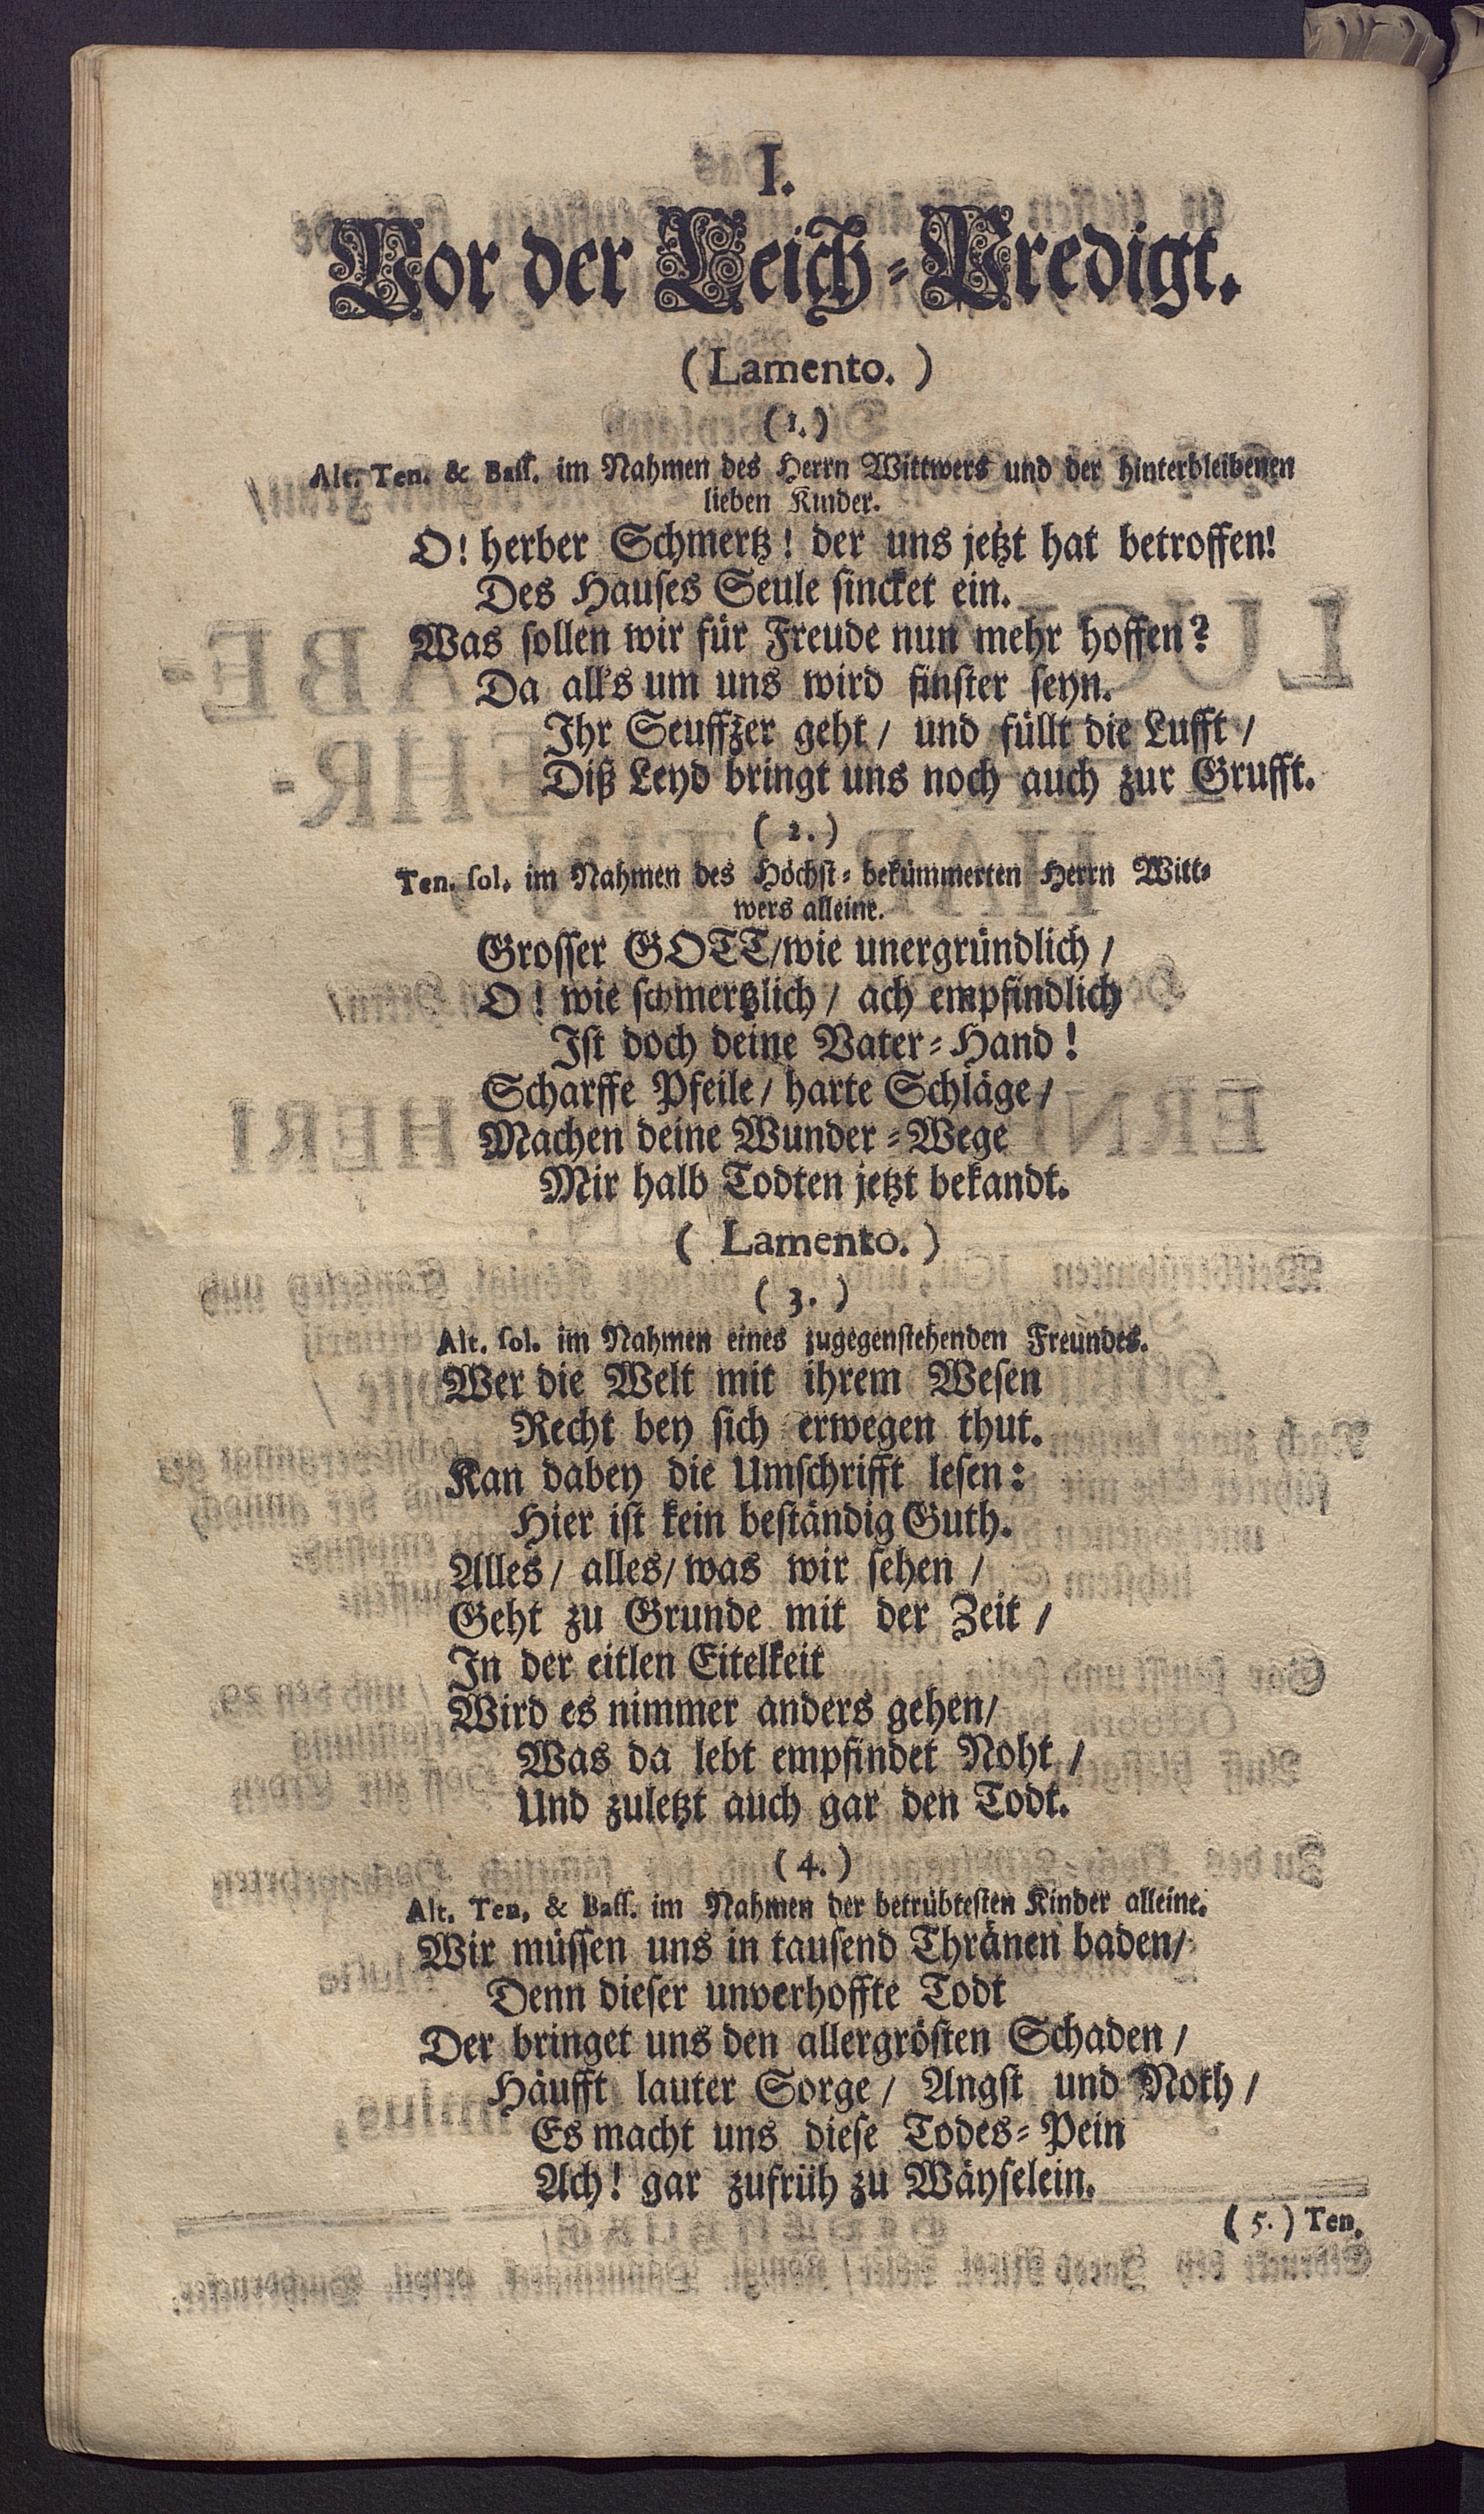 I.
Vor der Leich-Predigt.
(Lamento.)
(1.)
Alt. Ten. & Bass. im Nahmen des Herrn Wittwers und der hinterbleibenen
lieben Kinder.
O! herber Schmertz! der uns jetzt hat betroffen!
Des Hauses Seule sincket ein.
Was sollen wir für Freude nun mehr hoffen?
Da alls um uns wird finster seyn.
Ihr Seuffzer geht / und füllt die Lufft /
Diß Leyd bringt uns noch auch zur Grufft.
(2.)
Ten. sol. im Nahmen des Höchst-bekümmerten Herrn Witt-
wers alleine.
Grosser GOTT/wie unergründlich /
O! wie schmertzlich / ach empfindlich
Ist doch deine Vater-Hand!
Scharffe Pfeile / harte Schläge /
Machen deine Wunder-Wege
Mir halb Todten jetzt bekandt.
(Lamento.)
(3.)
Alt. sol. im Nahmen eines zugegenstehenden Freundes.
Wer die Welt mit ihrem Wesen
Recht bey sich erwegen thut.
Kan dabey die Umschrifft lesen:
Hier ist kein beständig Guth.
Alles / alles / was wir sehen /
Geht zu Grunde mit der Zeit /
In der eitlen Eitelkeit
Wird es nimmer anders gehen/
Was da lebt empfindet Noht /
Und zuletzt auch gar den Todt.
(4.)
Alt. Ten. & Bass. im Nahmen der betrübtesten Kinder alleine.
Wir müssen uns in tausend Thränen baden/
Denn dieser unverhoffte Todt
Der bringet uns den allergrösten Schaden /
Häufft lauter Sorge / Angst und Noth /
Es macht uns diese Todes-Pein
Ach! gar zufrüh zu Wäyselein.
(5.) Ten.